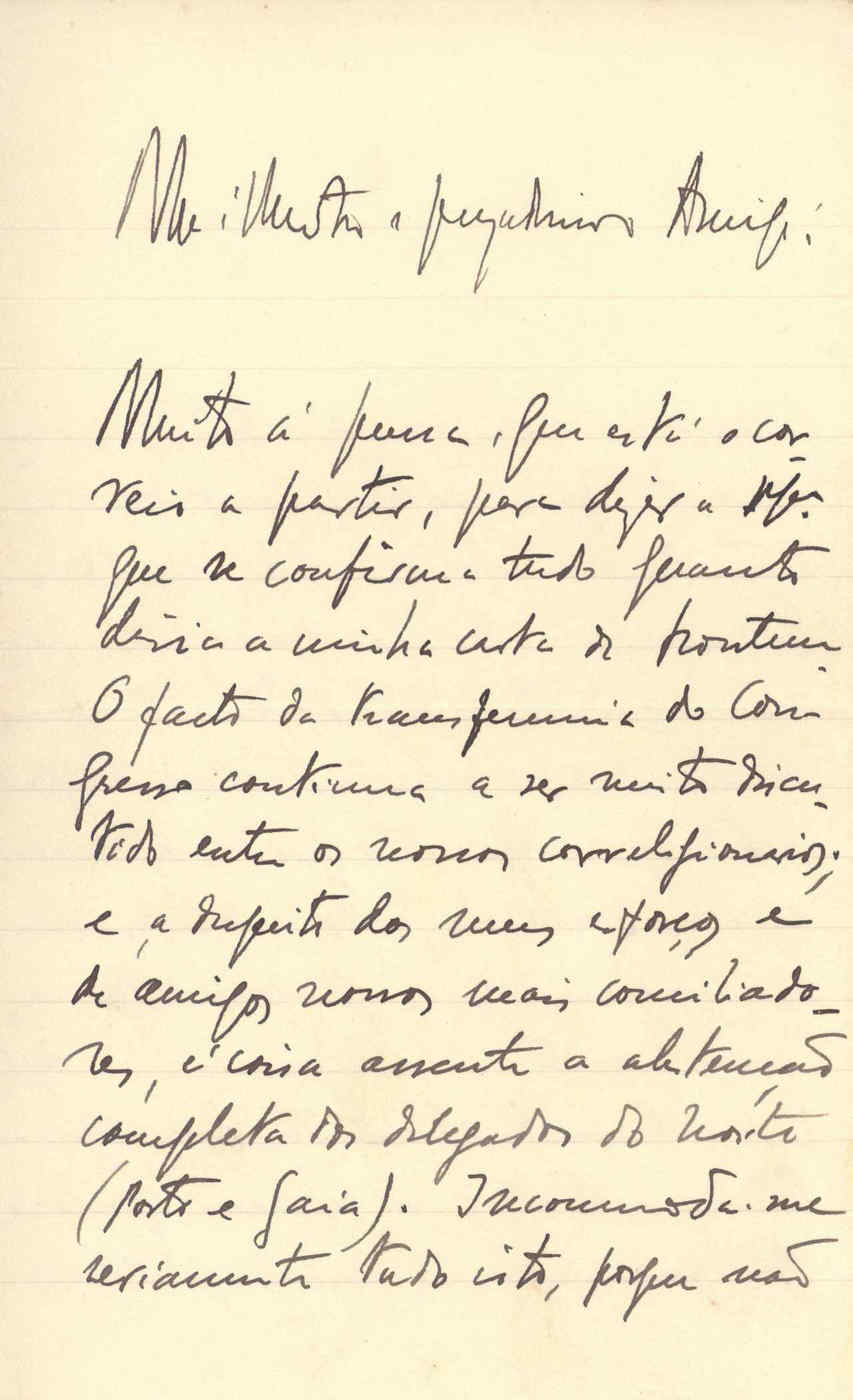 Meu illustre e prezadissimo Amigo:
Muito á pressa, que está o cor-
reio a partir, para dizer a V. Ex.ª
que se confirma tudo quanto
dizia a minha carta de hontem.
O facto da transferencia do Con-
gresso continua a ser muito discu-
tido entre os nossos correligionarios;
e, a despeito dos meus esforços e
de amigos nossos mais conciliado-
res, é coisa assente a abstenção
completa dos delegados do norte
(Porto e Gaia). Incommoda-me
seriamente tudo isto, porque não